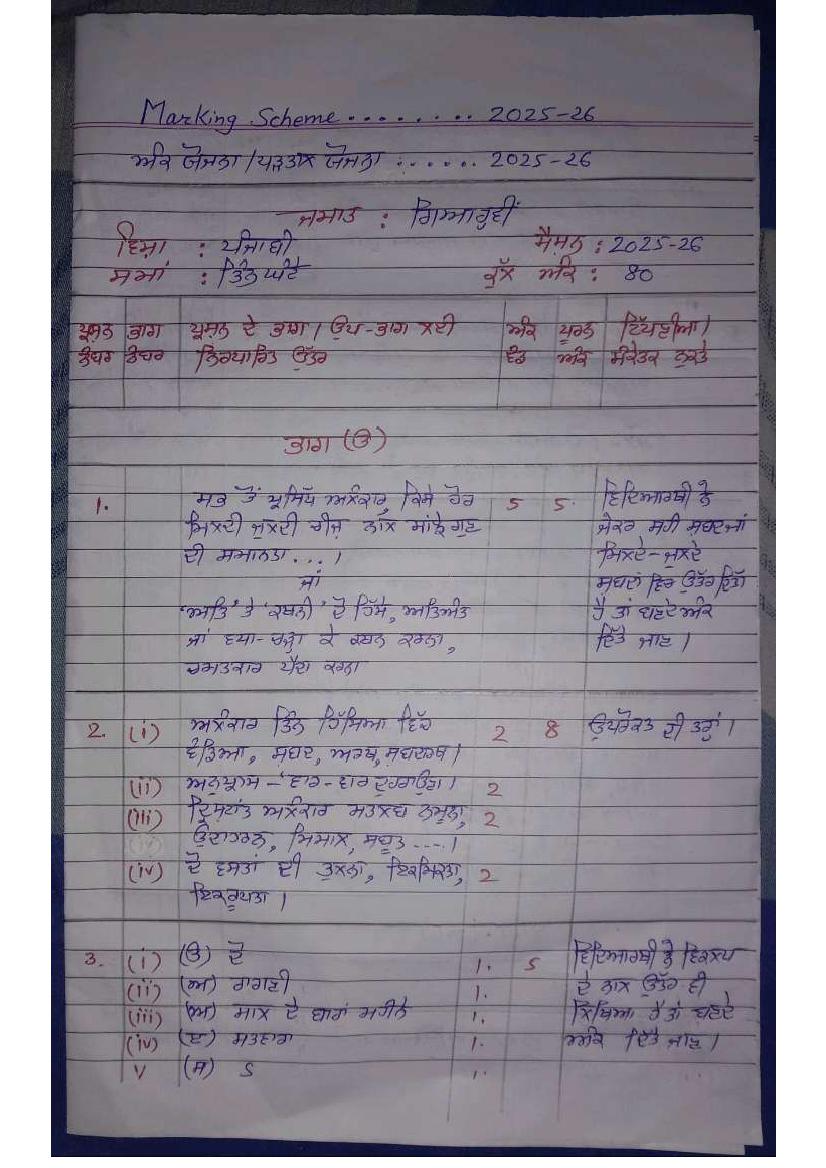 Marking Scheme ......... 2025-26
ਅੰਕ ਯੋਜਨਾ / ਪੜਤਾਲ ਯੋਜਨਾ ...... 2025-26
ਜਮਾਤ : ਗਿਆਰ੍ਹਵੀਂ
ਵਿਸ਼ਾ : ਪੰਜਾਬੀ ਸੈਸ਼ਨ : 2025-26
ਸਮਾਂ : ਤਿੰਨ ਘੰਟੇ ਕੁੱਲ ਅੰਕ : 80
ਪ੍ਰਸ਼ਨ ਭਾਗ ਪ੍ਰਸ਼ਨ ਦੇ ਭਾਗ / ਉਪ-ਭਾਗ ਲਈ ਅੰਕ ਪੂਰਨ ਟਿੱਪਣੀਆਂ /
ਨੰਬਰ ਨੰਬਰ ਨਿਰਧਾਰਿਤ ਉੱਤਰ ਵੰਡ ਅੰਕ ਸੰਕੇਤਕ ਨੁਕਤੇ
ਭਾਗ (ੳ)
1. ਸਭ ਤੋਂ ਪ੍ਰਸਿੱਧ ਅਲੰਕਾਰ, ਕਿਸੇ ਹੋਰ 5 5. ਵਿਦਿਆਰਥੀ ਨੇ
ਮਿਲਦੀ ਜੁਲਦੀ ਚੀਜ਼ ਨਾਲ ਸਾਂਝੇ ਗੁਣ ਜੇਕਰ ਸਹੀ ਸ਼ਬਦ ਜਾਂ
ਦੀ ਸਮਾਨਤਾ...। ਮਿਲਦੇ-ਜੁਲਦੇ
ਜਾਂ ਸ਼ਬਦਾਂ ਵਿਚ ਉੱਤਰ ਦਿੱਤਾ
'ਅਤਿ' ਤੇ 'ਕਥਨੀ' ਦੋ ਹਿੱਸੇ, ਅਤਿਅੰਤ ਹੈ ਤਾਂ ਬਣਦੇ ਅੰਕ
ਜਾਂ ਵਧਾ-ਚੜ੍ਹਾ ਕੇ ਕਥਨ ਕਰਨਾ, ਦਿੱਤੇ ਜਾਣ।
ਚਮਤਕਾਰ ਪੈਦਾ ਕਰਨਾ
2. (i) ਅਲੰਕਾਰ ਤਿੰਨ ਹਿੱਸਿਆ ਵਿੱਚ 2 8 ਉਪਰੋਕਤ ਦੀ ਤਰ੍ਹਾਂ।
ਵੰਡਿਆ, ਸ਼ਬਦ, ਅਰਥ, ਸ਼ਬਦਾਰਥ।
(ii) ਅਨੁਪ੍ਰਾਸ - 'ਵਾਰ-ਵਾਰ ਦੁਹਰਾਉਣਾ। 2
(iii) ਦ੍ਰਿਸ਼ਟਾਂਤ ਅਲੰਕਾਰ ਮਤਲਬ ਨਮੂਨਾ, 2
ਉਦਾਹਰਨ, ਮਿਸਾਲ, ਸਬੂਤ ....।
(iv) ਦੋ ਵਸਤਾਂ ਦੀ ਤੁਲਨਾ, ਇਕਮਿਕਤਾ, 2
ਇਕਰੂਪਤਾ।
3. (i) (ੳ) ਦੋ 1. 5 ਵਿਦਿਆਰਥੀ ਨੇ ਵਿਕਲਪ
(ii) (ਅ) ਰਾਗਣੀ 1. ਦੇ ਨਾਲ ਉੱਤਰ ਵੀ
(iii) (ਅ) ਸਾਲ ਦੇ ਬਾਰਾਂ ਮਹੀਨੇ 1. ਲਿਖਿਆ ਹੈ ਤਾਂ ਬਣਦੇ
(iv) (ੲ) ਸਤਵਾਰਾ 1. ਅੰਕ ਦਿੱਤੇ ਜਾਣ।
V (ਸ) 5 1.